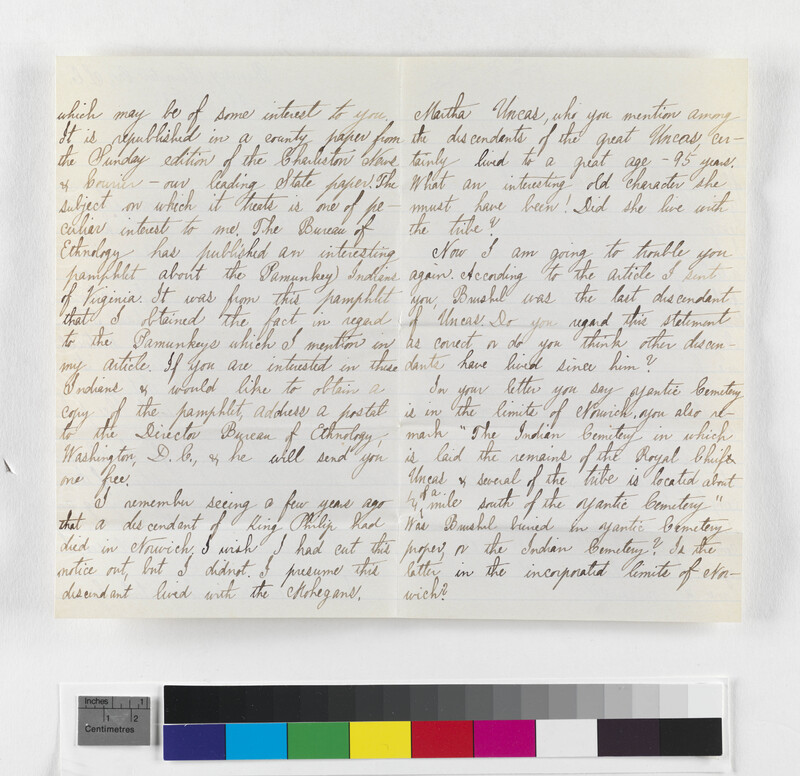 which may be of some interest to you.
It is republished in a county paper from
the Sunday edition of the Charleston News
& Courier – our leading State paper. The
subject on which it treats is one of pe-
culiar interest to me. The Bureau of
Ethnology has published an interesting
pamphlet about the Pamunkey Indians
of Virginia. It was from this pamphlet
that I obtained the fact in regard
to the Pamunkeys which I mention in
my article. If you are interested in these
Indians & would like to obtain a
copy of the pamphlet, address a postal
to the Director Bureau of Ethnology,
Washington, D.C., & he will send you
one free.
I remember seeing a few years ago
that a discendent of King Philip had
died in Norwich. I wish I had cut this
notice out, but I didnot. I presume this
discendant lived with the Mohegans.
Martha Uncas, who you mention among
the discendants of the great Uncas, cer-
tainly lived to a great age – 95 years.
What an interesting old character she
must have been! Did she live with
the tribe?
Now I am going to trouble you
again. According to the article I sent
you, Brushel was the last discendant
of Uncas. Do you regard this statement
as correct or do you think other discen-
dants have lived since him?
In your letter you say Yantic Cemetery
is in the limits of Norwich, you also re-
mark "The Indian Cemetery in which
is laid the remains of the Royal Chief
Uncas & several of the tribe is located about
1/4 of a mile south of the Yantic Cemetery"
Was Brushel buried in Yantic Cemetery
proper, or the Indian Cemetery? Is the
latter in the incorporated limits of Nor-
wich?
Inches 1
1 2
Centimetres